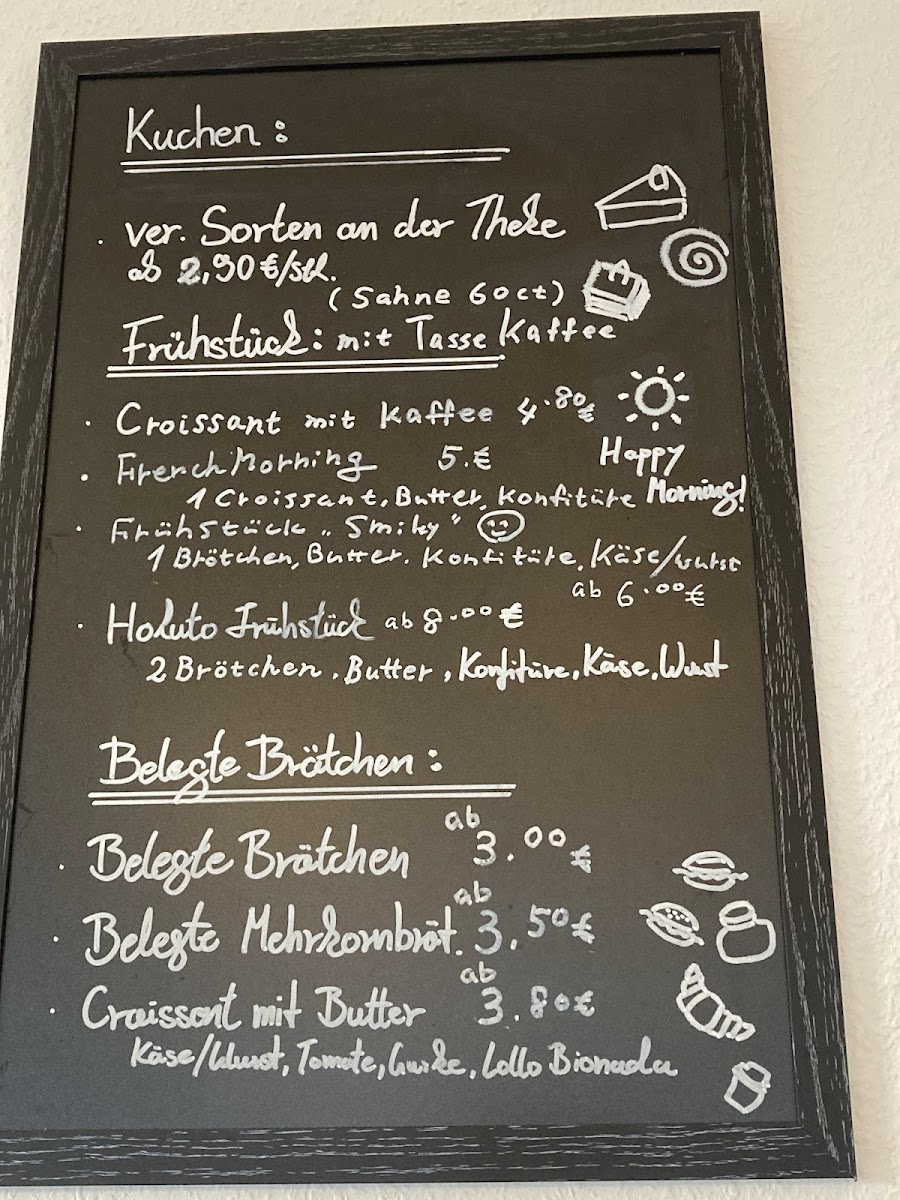 Kuchen :
. ver. Sorten an der Theke
ab 2,90 €/stk.
(Sahne 60ct)
Frühstück: mit Tasse Kaffee
. Croissant mit Kaffee 4.80€
. French Morning 5.€
Happy
1 Croissant, Butter, Konfitüre Morning!
. Frühstück „Smiky“
1 Brötchen, Butter, Konfitüre, Käse/wurst
ab 6.00€
. Hokuto Frühstück ab 8.00€
2 Brötchen, Butter, Konfitüre, Käse, Wurst
Belegte Brötchen :
. Belegte Brötchen ab 3.00€
. Belegte Mehrkornbröt. ab 3.50€
. Croissant mit Butter ab 3.80€
Käse/Wurst, Tomate, Gurke, Lollo Bionada